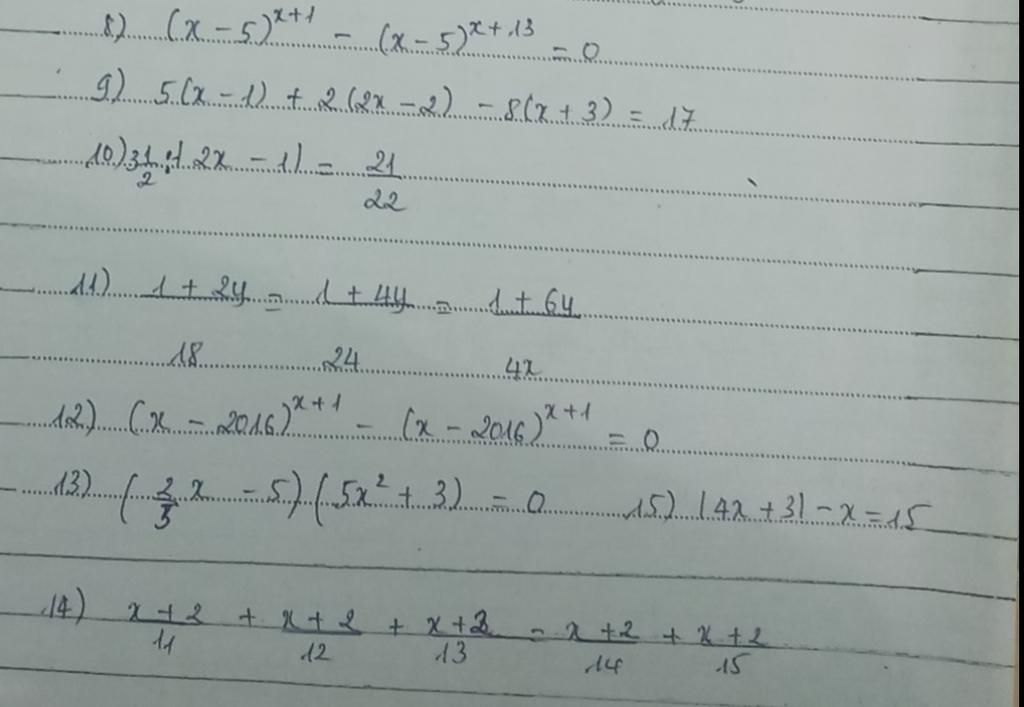 8) (x - 5)^{x+1} - (x - 5)^{x+13} = 0
9) 5(x - 1) + 2(2x - 2) - 8(x + 3) = 17
10) 31/2 : | 2x - 1 | = 21/22
11) (1 + 2y)/18 = (1 + 4y)/24 = (1 + 6y)/4x
12) (x - 2016)^{x+1} - (x - 2016)^{x+1} = 0
13) (2/3 x - 5)(5x² + 3) = 0 15) |4x + 3| - x = 15
14) (x + 2)/11 + (x + 2)/12 + (x + 2)/13 = (x + 2)/14 + (x + 2)/15